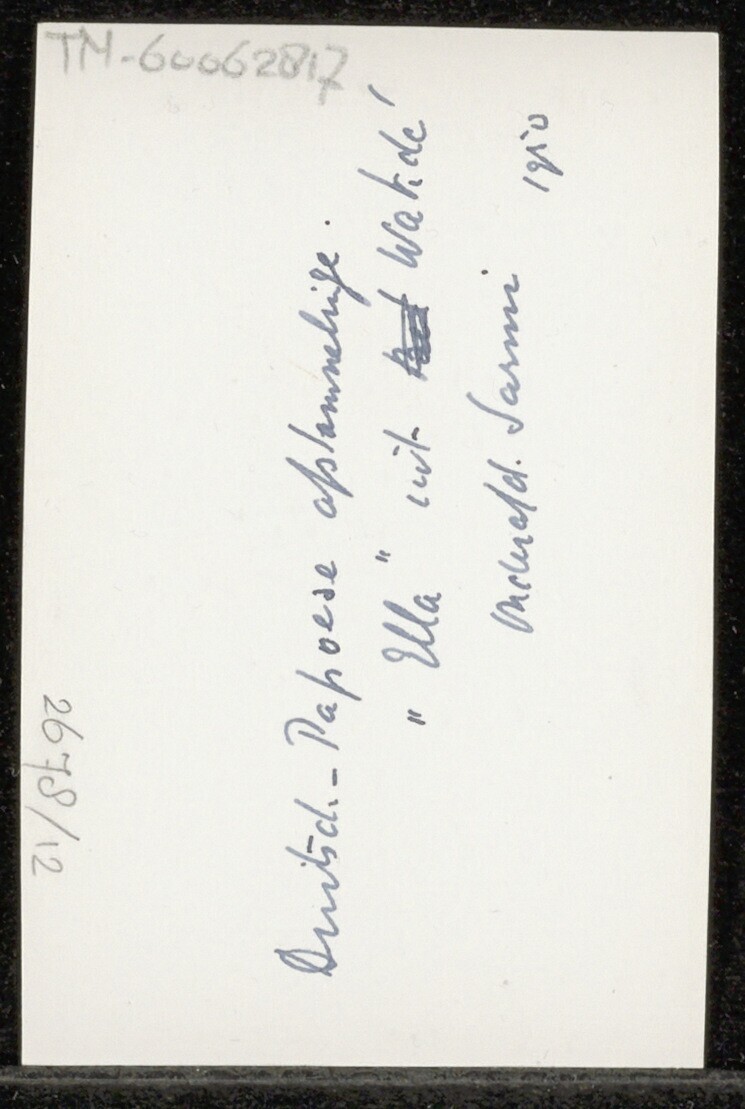 TM-60062817
Duitsch-Papoese afstammelinge.
"Ella" uit Wakdé
Onderafd. Sarmi 1910
2678/12